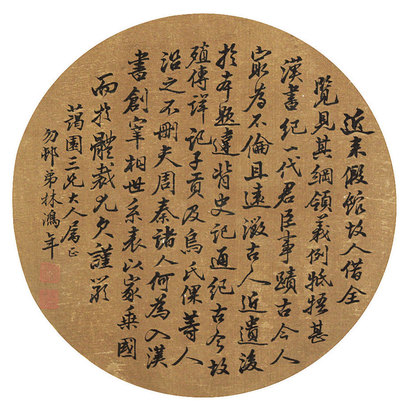 近来假館故人借全
覽見其綱領義例牴牾甚
漢書紀一代君臣事蹟古今人
最為不倫且遠溯古人近遺後
於本題違背史記通紀古今故
殖傳詳記子貢及烏氏倮等人
沿之不刪夫周秦諸人何為入漢
書創宰相世系表以家乘國
而於體裁尤欠謹嚴
藹園三兄大人屬正
勿邨弟林鴻年